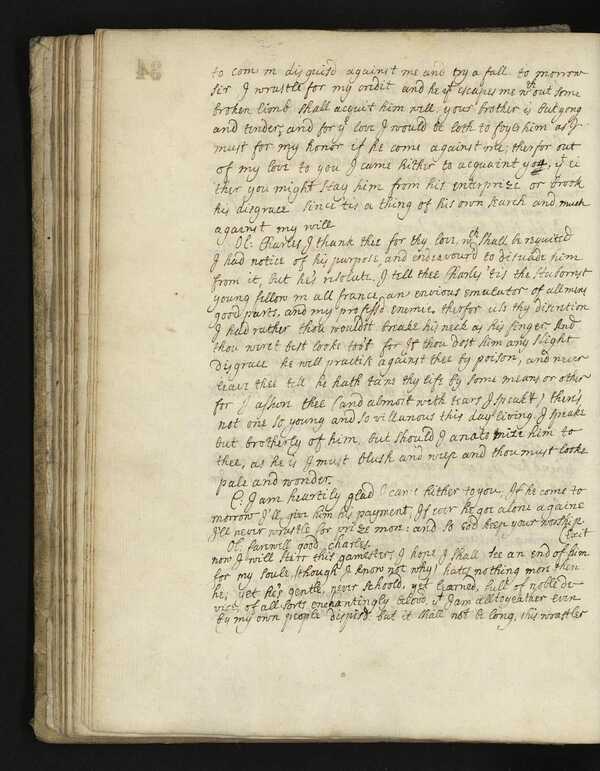 to com in disguis'd against me and try a fall to morrow
sir I wrastle for my credit and he yt escapes me wth out some
broken limb shall acquit him well, your brother is but yong
and tender, and for yr love I would be loth to foyle him as I
must for my honor if he come against me; therfor out
of my love to you I came hither to acquaint you, yt ei
ther you might stay him from his enterprize or brook
his disgrace since 'tis a thing of his own search and much
against my will
Ol. Charles I thank thee for thy love, wch shall be requited
I had notice of his purpose, and endeavour'd to disuade him
from it, but he's resolute. I tell thee Charles 'tis the stubornst
young fellow in all france, an envious emulator of all mens
good parts, and my profess'd enemie, therfor use thy discretion
I had rather thou wouldst breake his neck as his finger And
thou wer't best looke too't for If thou dost him any slight
disgrace he will practise against thee by poison, and never
leave thee till he hath tane thy life by some means or other
for I assure thee (and almost with tears I speak't) there's
not one so young and so villanous this day living. I speake
but brotherly of him, but should I anatomize him to
thee, as he is I must blush and weep and thou must looke
pale and wonder.
C: I am heartily glad I came hither to you, If he come to
morrow I'll give him his payment, If ever he goe alone againe
I'll never wrastle for prize more: and so God keep your worship
Exit
Ol. farewell good charles.
now I will stirr this gamester, I hope I shall see an end of him
for my soule (though I know not why) hates nothing more then
he; yet he's gentle, never schoold, yet learned, full of noble de
vice, of all sorts enchantingly belovd, yt I am alltogeather even
by my own people despisd: but it shall not be long, this wrastler
34